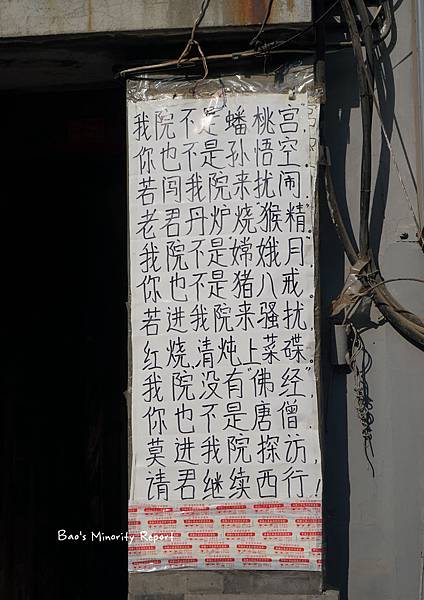 我院不是"蟠桃宫",
你也不是孙悟空,
若闯我院来扰闹,
老君丹炉烧"猴精"。
我院不是"嫦娥月",
你也不是猪八戒,
若进我院来骚扰,
红烧,清炖上菜碟。
我院没有"佛经",
你也不是唐僧,
莫进我院探访,
请君继续西行!
Bao's Minority Report